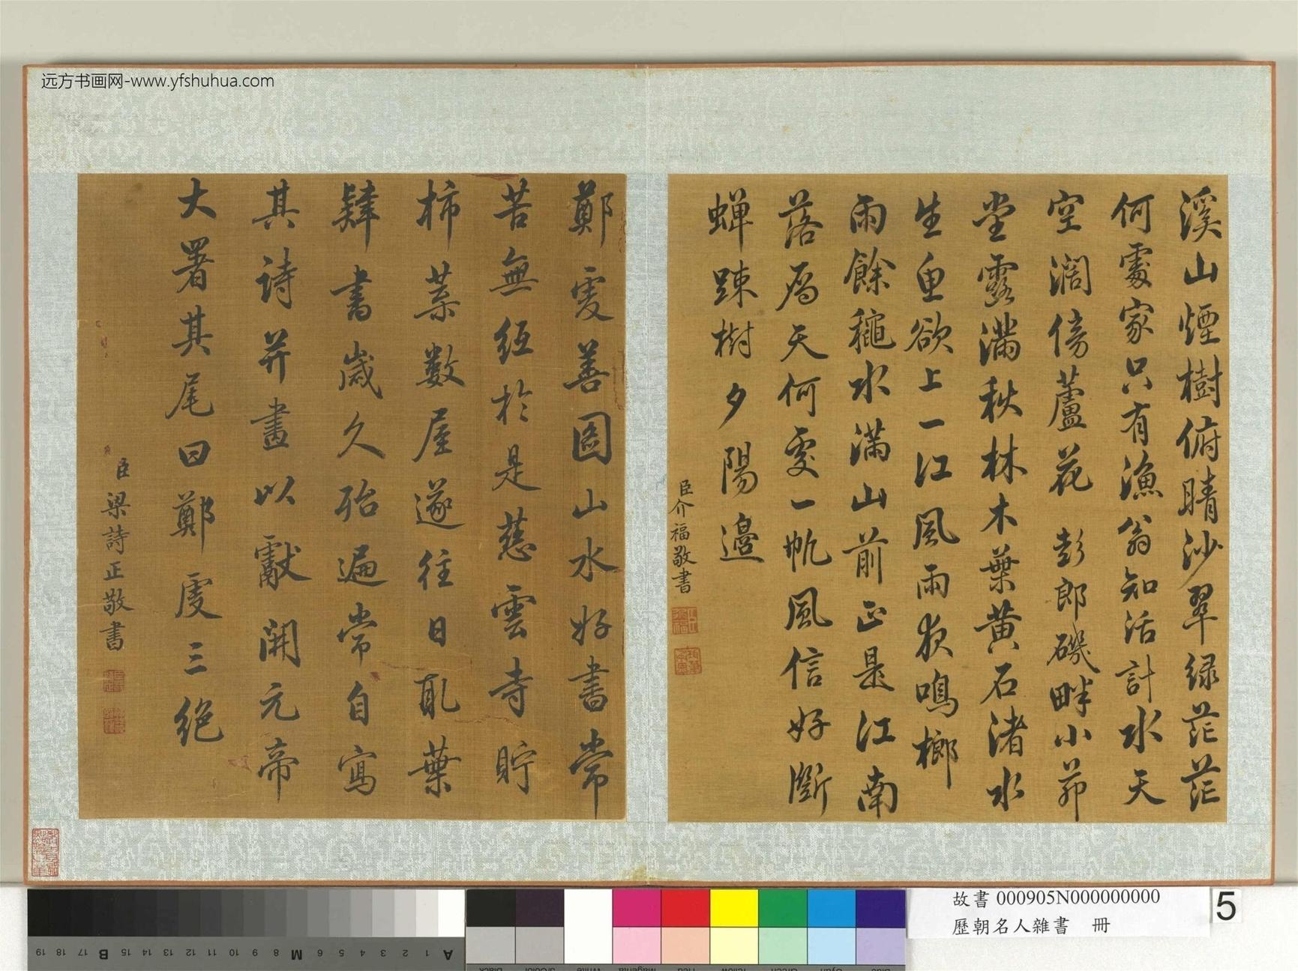 远方书画网-www.yfshuhua.com
溪山煙樹俯晴沙翠緑茫茫
何處家只有漁翁知活計水天
空闊傍蘆花 彭郎磯畔小茆
堂露滿秋林木葉黄石渚水
生魚欲上一江風雨夜鳴榔
雨餘穐水滿山前正是江南
落雁天何處一帆風信好斷
蟬踈樹夕陽邊
臣介福敬書
鄭虔善圖山水好書常
苦無紙於是慈雲寺貯
柿葉數屋遂往日取葉
肄書歲久殆遍常自寫
其詩并畫以獻開元帝
大署其尾曰鄭虔三絶
臣梁詩正敬書
故書 000905N000000000
歷朝名人雜書 冊
5
19 18 17 B 16 15 14 13 12 11 10 9 8 M 7 6 5 4 3 2 1 A